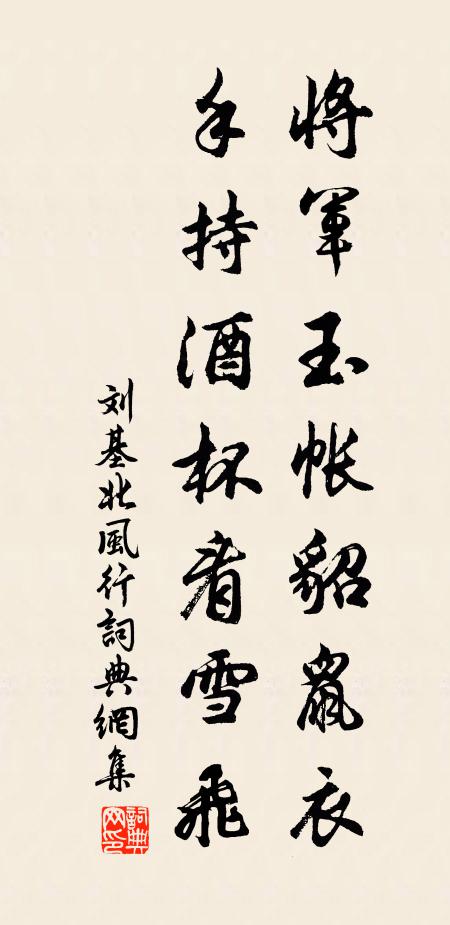 將軍玉帳貂鼠衣
手持酒杯看雪飛
刘基北風行詞典網集
詞典
网印